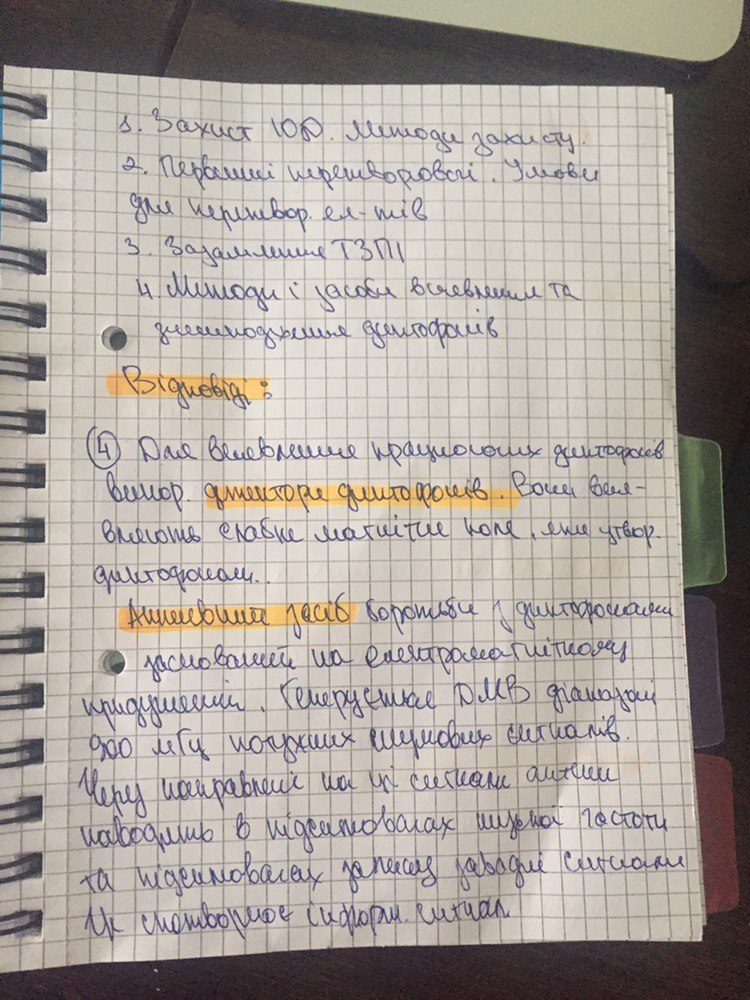 1. Захист ЮО. Методи захисту.
2. Первинні перетворювачі. Умови
для перетвор. ел-тів
3. Заземлення ТЗПІ
4. Методи і засоби виявлення та
знешкодження диктофонів
Відповіді:
4 Для виявлення працюючих диктофонів
викор. детектори диктофонів. Вони вияв-
вляють слабке магнітне поле, яке утвор.
диктофонами..
засіб боротьби з диктофонами
заснований на електромагнітному
придушенні. Генерується ДМВ діапазоні
900 мГц потужних шумових сигналів.
Через направлені на ці сигнали антени
наводять в підсилювачах низької частоти
та підсилювачах запису завадні сигнали
Це спотворює інформ. сигнал.